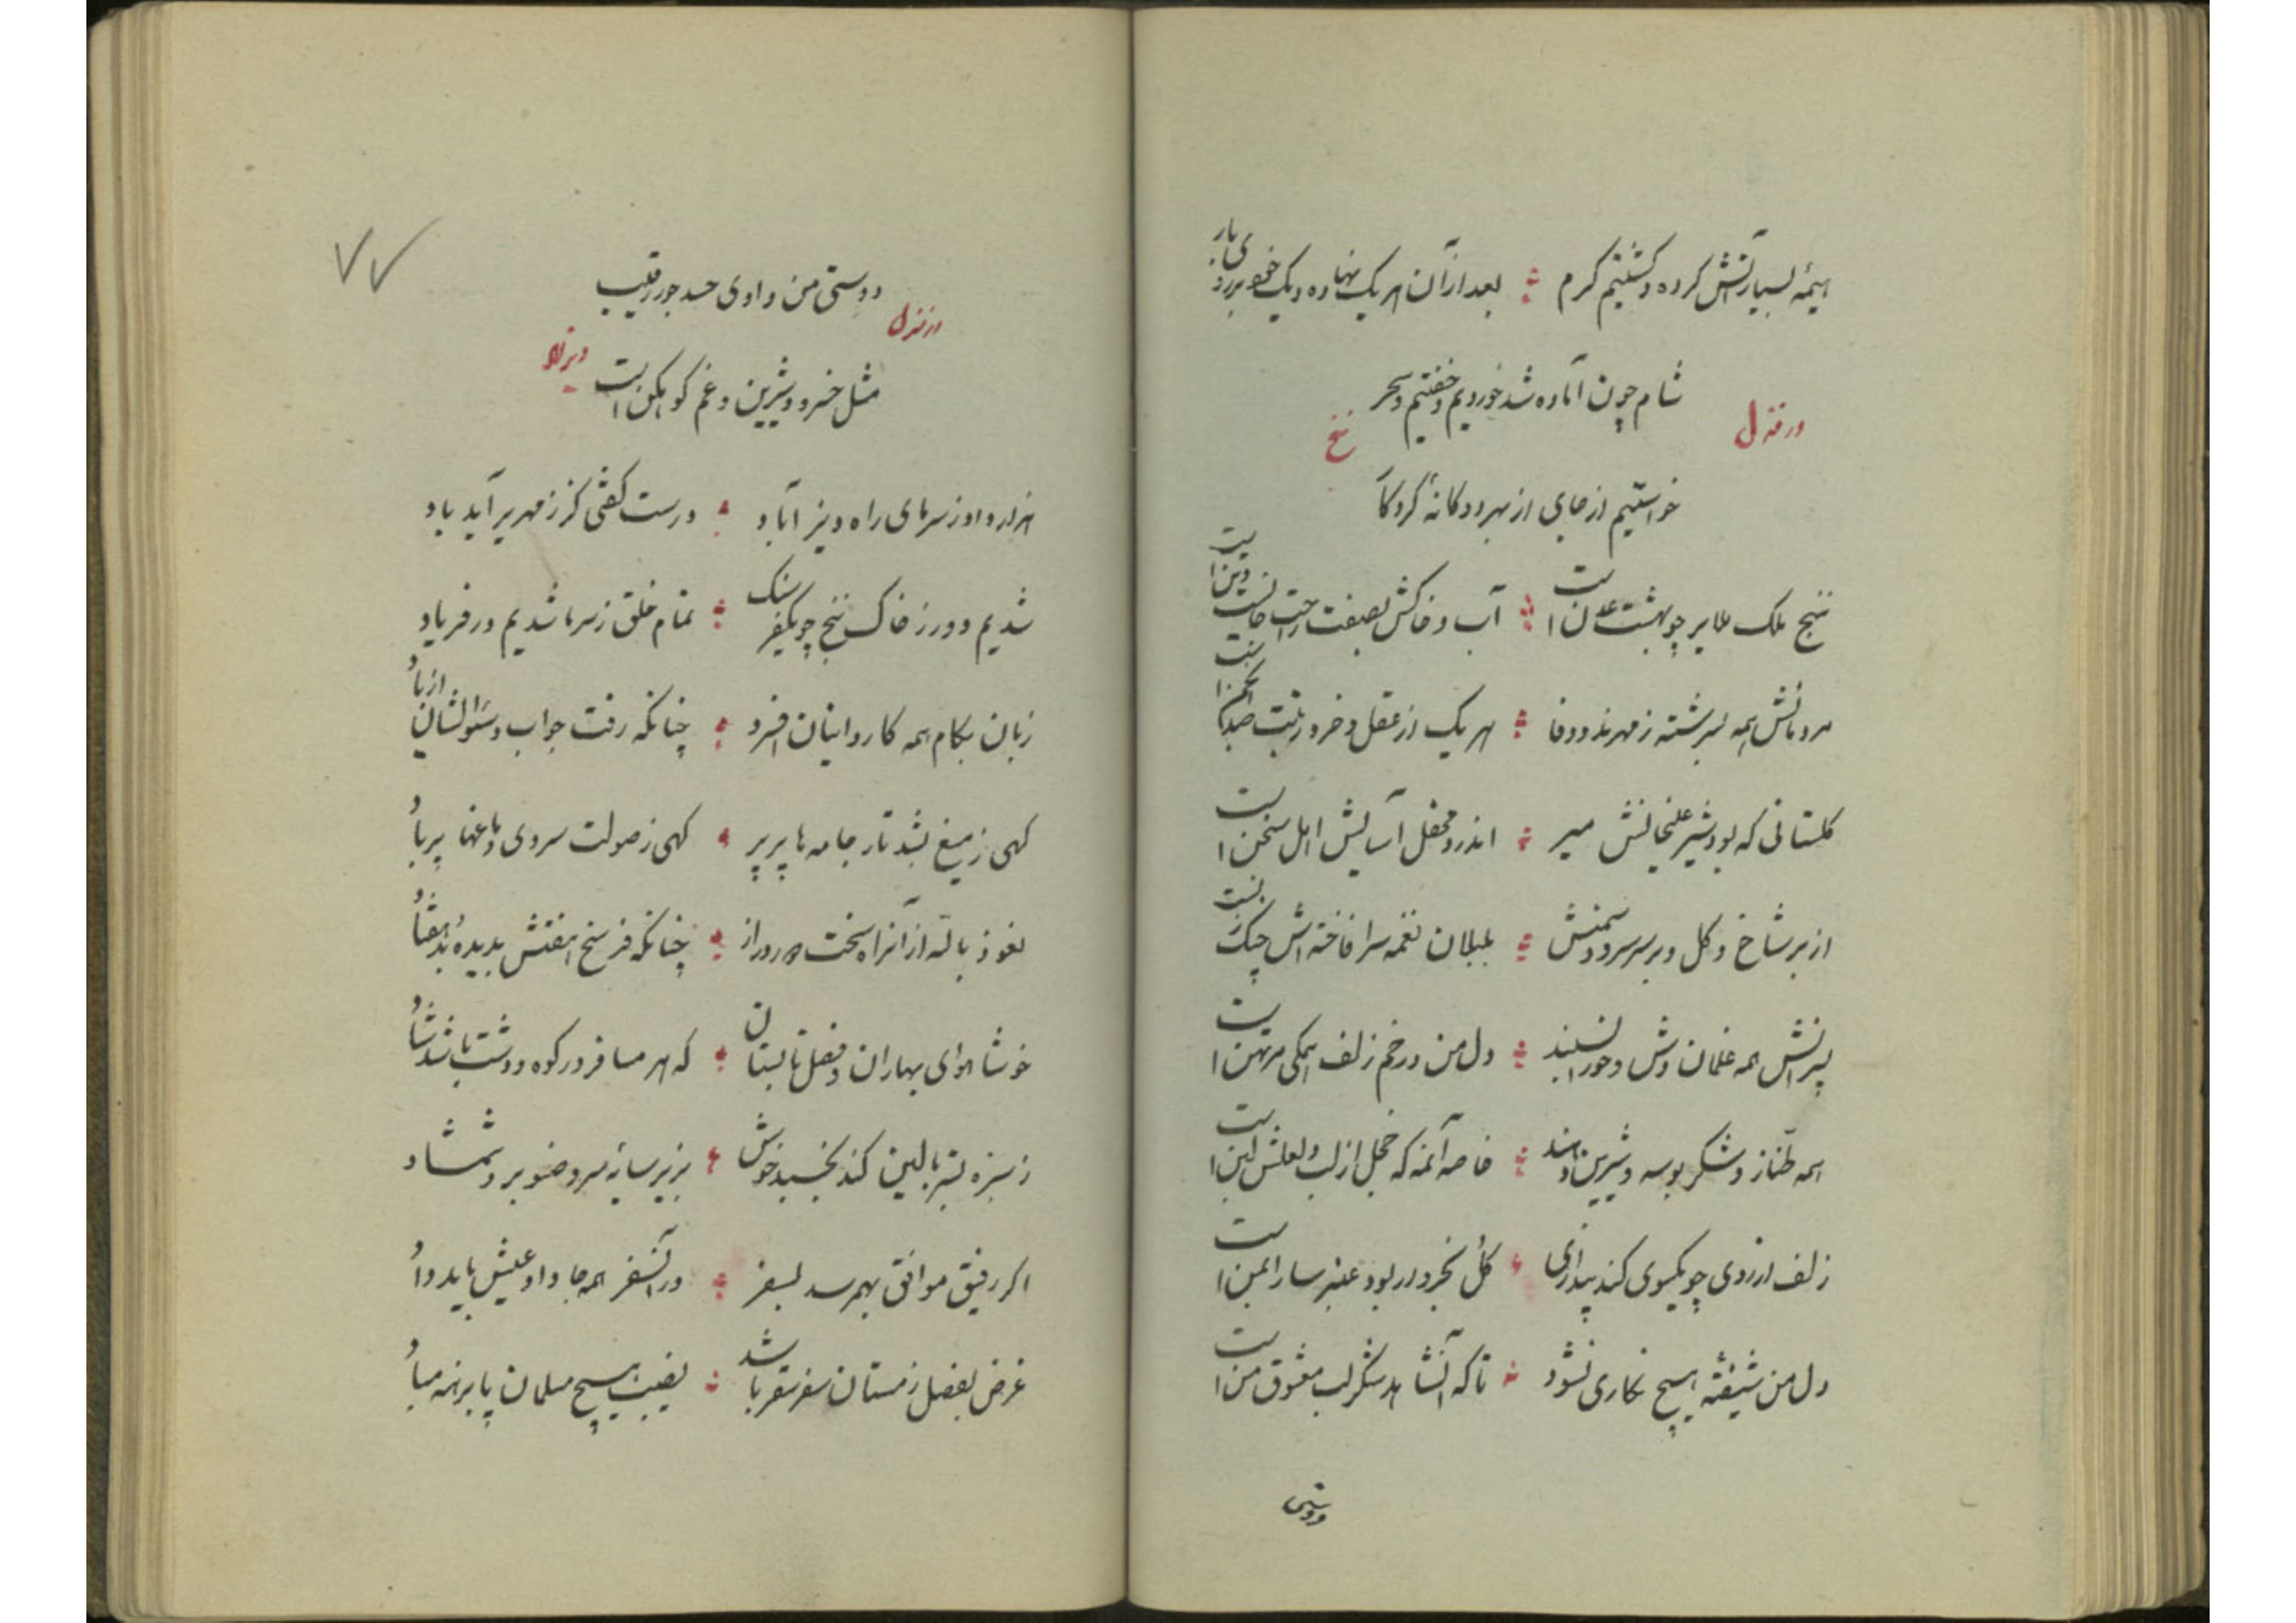 هیمه بسیار آتش کرده و گشتیم گرم : بعد از آن هر یک نهاده دیک بر
شام چون آماده شد خوردیم و خفتیم و سحر
در منزل ننج
خواستیم از جای از بهر دوگانه کردگار
ننج ملک ملایر چو بهشت عدن است : آب و خاکش بصفت راحت جانست و تن است
مردمانش همه بسرشته ز مهرند و وفا : هر یک از عقل و خرد زینت صد انجمن است
گلستانی که بود شیرعلیخانش میر : اندرو محفل آسایش اهل سخن است
از بر شاخ گل و بر سر سرو و سمنش : بلبلان نغمه سرا فاخته اش
پسرانش همه غلمان وش و حورا نسبند : دل من در خم زلف همگی مرتهن است
همه طناز و شکر بوسه و شیرین دهنند : خاصه آنمه که خجل از لب لعلش لبن است
زلف از روی چو یکسوی کند پنداری : گل بخروار بود عنبر سارا بمن است
دل من شیفته هیچ نگاری نشود : تا که آنشاهد شکر لب معشوق من است
دوستی
۷۷
دوستی من و او وی حسد جور رقیب
در منزل
مثل خسرو و شیرین و غم کوهکن است
هزار داد ز سرمای راه : درست گفتی کز زمهریر آید باد
شدیم دور ز خاک ننج چو یکفرسنگ : تمام خلق ز سرما شدیم در فریاد
زبان بکام همه کاروانیان افسرد : چنانکه رفت جواب و سؤالشان از یاد
گهی ز میغ بشد تار جامه ها پر پر : گهی ز صولت سردی دماغها پر باد
نعوذ بالله از آنراه سخت دور و دراز : چنانکه فرسخ هفتش بدیده هفتاد
خوشا هوای بهاران و فصل تابستان : که هر مسافر در کوه و دشت باشد شاد
ز سبزه بستر بالین کند بخسبد خوش : بزیر سایه سرو و صنوبر و شمشاد
اگر رفیق موافق بهم رسد بسفر : در آنسفر همه جا داد عیش باید داد
غرض بفصل زمستان سفر سقر باشد : نصیب هیچ مسلمان پا برهنه مباد